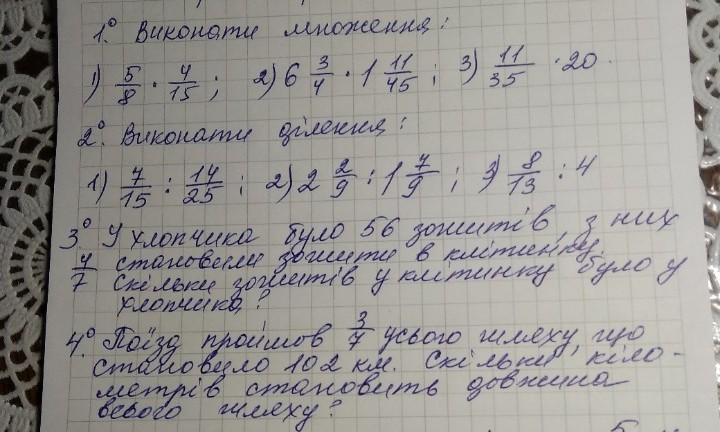 1.° Виконати множення:
1) 5/8 · 4/15; 2) 6 3/4 · 1 11/45; 3) 11/35 · 20.
2.° Виконати ділення:
1) 7/15 : 14/25; 2) 2 2/9 : 1 7/9; 3) 8/13 : 4
3.° У хлопчика було 56 зошитів, з них
4/7 становили зошити в клітинку.
Скільки зошитів у клітинку було у
хлопчика?
4.° Поїзд пройшов 3/7 усього шляху, що
становило 102 км. Скільки кіло-
метрів становить довжина
всього шляху?